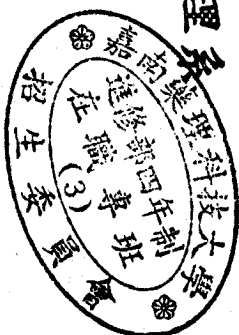 嘉南藥理科技大學
進修部四年制
在職專班
(3)
招生委員會